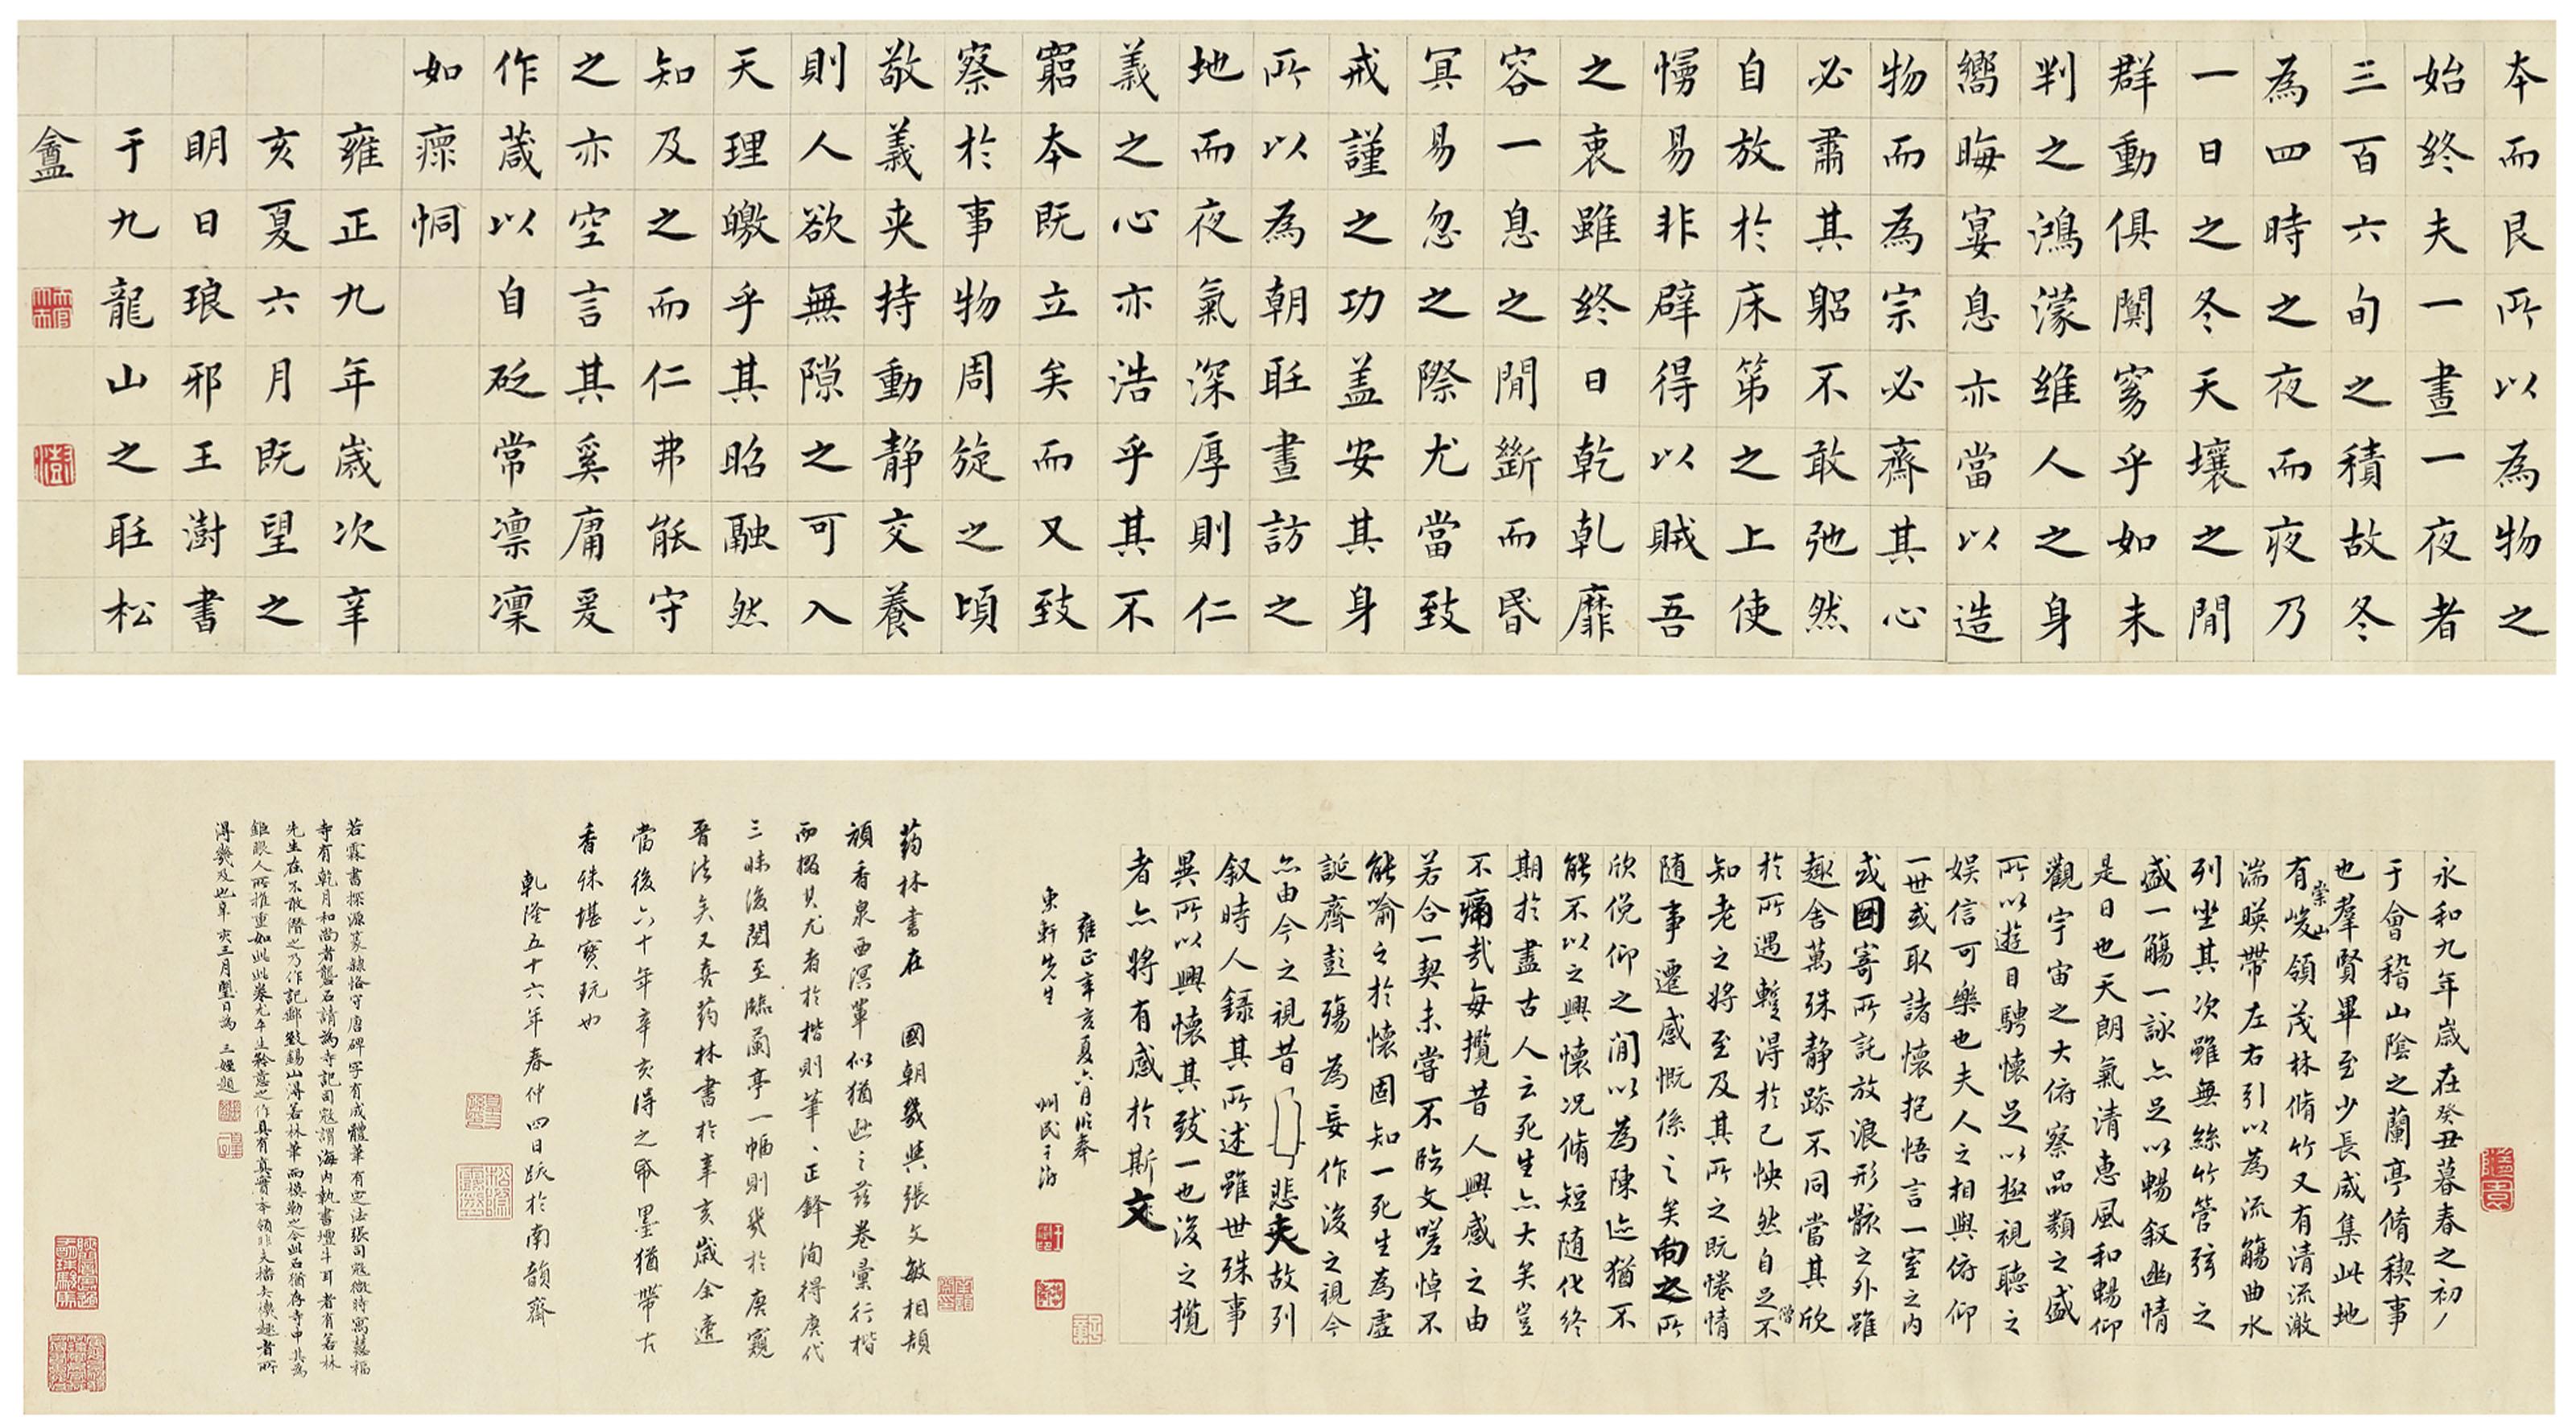 本而艮所以為物之
始終夫一晝一夜者
三百六旬之積故冬
為四時之夜而夜乃
一日之冬天壤之間
群動俱闃窈乎如未
判之鴻濛維人之身
嚮晦宴息亦當以造
物而為宗必齋其心
必肅其躬不敢弛然
自放於床笫之上使
慢易非辟得以賊吾
之衷雖終日乾乾靡
容一息之間斷而昏
冥易忽之際尤當致
戒謹之功盖安其身
所以為朝聽晝訪之
地而夜氣深厚則仁
義之心亦浩乎其不
窮本既立矣而又致
察於事物周旋之頃
敬義夹持動静交養
則人欲無隙之可入
天理皦乎其昭融然
知及之而仁弗能守
之亦空言其奚庸爰
作葴以自砭常凛凛
如瘝恫
雍正九年歲次辛
亥夏六月既望之
明日琅邪王澍書
于九龍山之聽松
盦
永和九年歲在癸丑暮春之初
于會稽山陰之蘭亭脩稧事
也羣賢畢至少長咸集此地
有崇山峻領茂林脩竹又有清流激
湍暎帶左右引以為流觴曲水
列坐其次雖無絲竹管弦之
盛一觴一詠亦足以暢叙幽情
是日也天朗氣清惠風和暢仰
觀宇宙之大俯察品類之盛
所以遊目騁懷足以極視聽之
娱信可樂也夫人之相與俯仰
一世或取諸懷抱悟言一室之内
或因寄所託放浪形骸之外雖
趣舍萬殊静躁不同當其欣
於所遇蹔得於己怏然自足不
知老之將至及其所之既惓情
随事遷感慨係之矣向之所
欣俛仰之間以為陳迹猶不
能不以之興懷况脩短随化終
期於盡古人云死生亦大矣豈
不痛哉每攬昔人興感之由
若合一契未嘗不臨文嗟悼不
能喻之於懷固知一死生為虚
誕齊彭殤為妄作後之視今
亦由今之視昔悲夫故列
叙時人録其所述雖世殊事
異所以興懷其致一也後之攬
者亦將有感於斯文
雍正辛亥夏六月臨奉
東軒先生
州民王澍
葯林書在 國朝幾與張文敏相頡
頏香泉西溟輩似猶遜之兹卷彙行楷
而掇其尤者於楷則筆、正鋒洵得唐代
三昧後閱至臨蘭亭一幅則幾於唐窺
晉法矣又喜葯林書於辛亥歲余適
當後六十年辛亥得之帋墨猶帶古
香殊堪寶玩也
乾隆五十六年春仲四日跋於南韻齋
若霖書探源篆隸恪守唐碑字有成體筆有定法張司寇微時寓慧福
寺有乾月和尚者礱石請為寺記司寇謂海内執書壇牛耳者有若林
先生在不敢僭之乃作記郵致錫山得若林筆而模勒之今此石猶存寺中其為
鉅眼人所推重如此此卷尤平生矜意之作真有真實本領非夫描头濃趣者所
得幾及也辛亥三月 日為 三 題